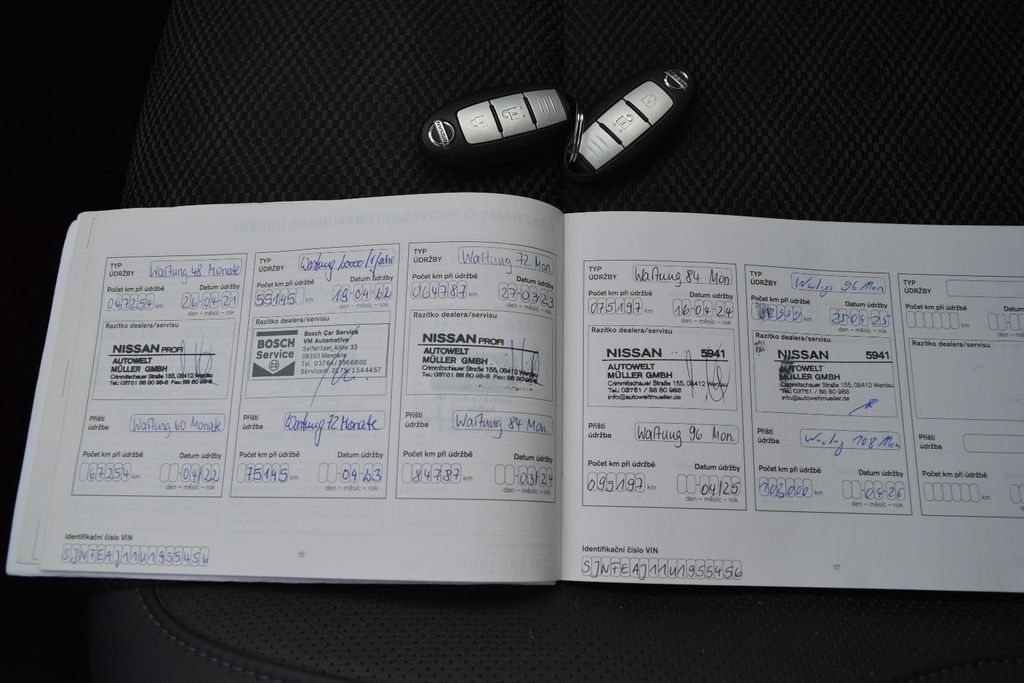 NISSAN
NISSAN
ZÁZNAMY O PROVEDENÍ PRAVIDELNÉ ÚDRŽBY
TYP ÚDRŽBY
Wartung 48 Monate
Počet km při údržbě
Datum údržby
047254 km
26-04-21
den – měsíc – rok
Razítko dealera/servisu
NISSAN PROFI
AUTOWELT
MÜLLER GMBH
Crimmitschauer Straße 155, 08412 Werdau
Tel.: 03761 88 80 98-0 Fax: 88 80 98-6
Příští údržba
Wartung 60 Monate
Počet km při údržbě
Datum údržby
67254 km
04/22
den – měsíc – rok
TYP ÚDRŽBY
Wartung /1 Jahr
Počet km při údržbě
Datum údržby
55145 km
19-04-22
den – měsíc – rok
Razítko dealera/servisu
BOSCH
Service
Bosch Car Service
VM Automotive
Seiferitzer Allee 33
08393 Meerane
Příští údržba
Wartung 72 Monate
Počet km při údržbě
Datum údržby
75145 km
04-23
den – měsíc – rok
TYP ÚDRŽBY
Wartung 72 Mon.
Počet km při údržbě
Datum údržby
064787 km
27-03-23
den – měsíc – rok
Razítko dealera/servisu
NISSAN PROFI
AUTOWELT
MÜLLER GMBH
Crimmitschauer Straße 155, 08412 Werdau
Tel.: 03761 88 80 98-0 Fax: 88 80 98-6
Příští údržba
Wartung 84 Mon.
Počet km při údržbě
Datum údržby
84787 km
03-24
den – měsíc – rok
Identifikační číslo VIN
SJNFEAJ11U1955456
16
TYP ÚDRŽBY
Wartung 84 Mon.
Počet km při údržbě
Datum údržby
075197 km
16-04-24
den – měsíc – rok
Razítko dealera/servisu
NISSAN 5941
AUTOWELT
MÜLLER GMBH
Crimmitschauer Straße 155, 08412 Werdau
Tel.: 03761 / 88 80 98-0
info@autoweltmueller.de
Příští údržba
Wartung 96 Mon.
Počet km při údržbě
Datum údržby
095197 km
04/25
den – měsíc – rok
TYP ÚDRŽBY
Wartung 96 Mon
Počet km při údržbě
Datum údržby
km
25-04-25
den – měsíc – rok
Razítko dealera/servisu
NISSAN 5941
AUTOWELT
MÜLLER GMBH
Crimmitschauer Straße 155, 08412 Werdau
Tel.: 03761 / 88 80 98-0
info@autoweltmueller.de
Příští údržba
Wartung 108 Mon
Počet km při údržbě
Datum údržby
108000 km
04-26
den – měsíc – rok
TYP ÚDRŽBY
Počet km při údržbě
km
den – m
Razítko dealera/servisu
Příští údržba
Počet km při údržbě
km
den
Identifikační číslo VIN
SJNFEAJ11U1955456
17